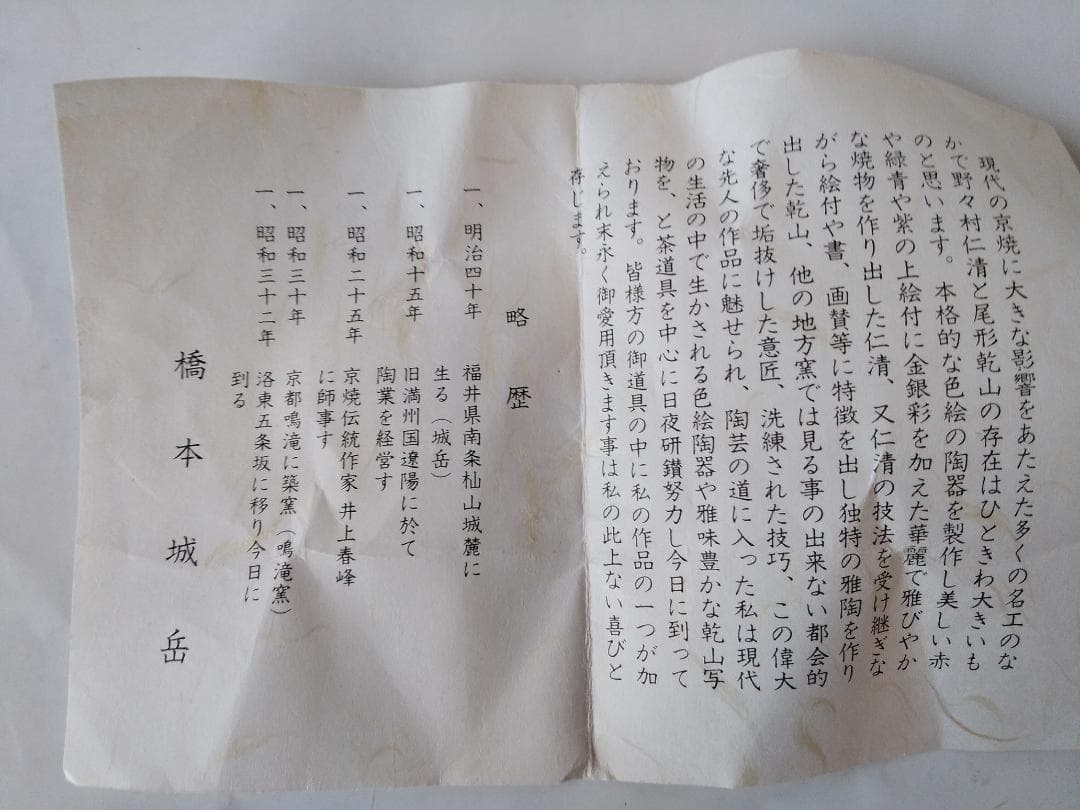 現代の京焼に大きな影響をあたえた多くの名工のな
かで野々村仁清と尾形乾山の存在はひときわ大きいも
のと思います。本格的な色絵の陶器を製作し美しい赤
や緑青や紫の上絵付に金銀彩を加えた華麗で雅びやか
な焼物を作り出した仁清、又仁清の技法を受け継ぎな
がら絵付や書、画賛等に特徴を出し独特の雅陶を作り
出した乾山、他の地方窯では見る事の出来ない都会的
で奢侈で垢抜けした意匠、洗練された技巧、この偉大
な先人の作品に魅せられ、陶芸の道に入った私は現代
の生活の中で生かされる色絵陶器や雅味豊かな乾山写
物を、と茶道具を中心に日夜研鑽努力し今日に到って
おります。皆様方の御道具の中に私の作品の一つが加
えられ末永く御愛用頂きます事は私の此上ない喜びと
存じます。
略歴
一、明治四十年 福井県南条杣山城麓に
生る(城岳)
一、昭和十五年 旧満州国遼陽に於て
陶業を経営す
一、昭和二十五年 京焼伝統作家 井上春峰
に師事す
一、昭和三十年 京都鳴滝に築窯(鳴滝窯)
一、昭和三十二年 洛東五条坂に移り今日に
到る
橋本城岳